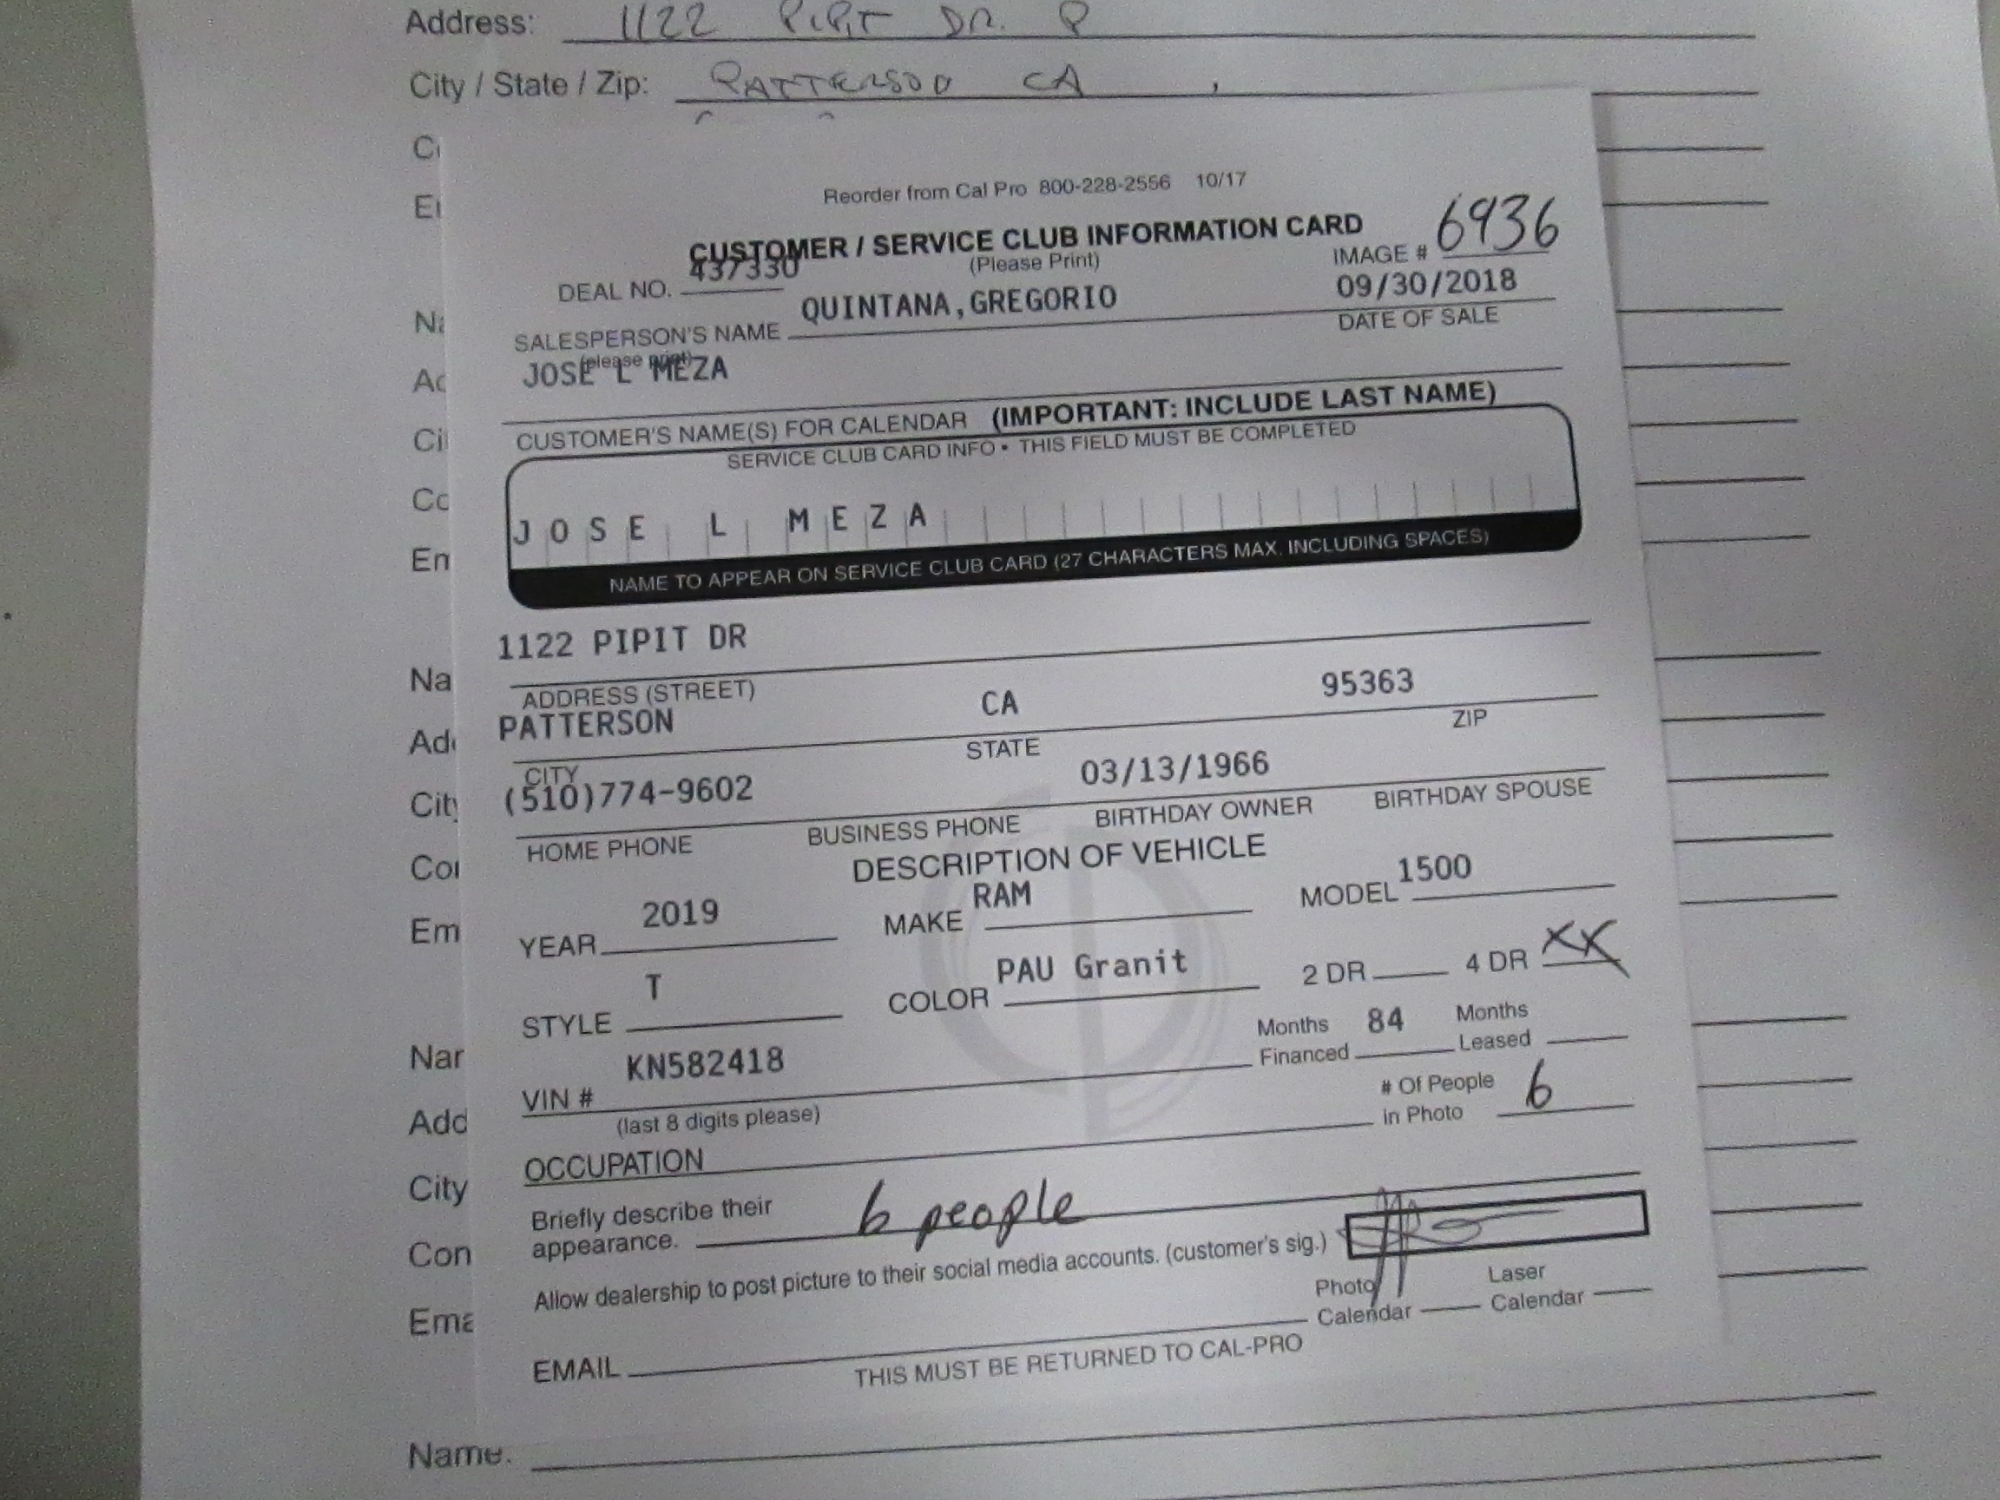 Address: 1122 PIPIT DR. P
City / State / Zip: PATTERSON CA ,
Reorder from Cal Pro 800-228-2556 10/17
CUSTOMER / SERVICE CLUB INFORMATION CARD
(Please Print)
IMAGE # 6936
DEAL NO. 437330
SALESPERSON'S NAME QUINTANA,GREGORIO
(please print)
09/30/2018
DATE OF SALE
JOSE L MEZA
CUSTOMER'S NAME(S) FOR CALENDAR (IMPORTANT: INCLUDE LAST NAME)
SERVICE CLUB CARD INFO • THIS FIELD MUST BE COMPLETED
JOSE L MEZA
NAME TO APPEAR ON SERVICE CLUB CARD (27 CHARACTERS MAX. INCLUDING SPACES)
1122 PIPIT DR
ADDRESS (STREET)
PATTERSON CA 95363
CITY STATE ZIP
(510)774-9602 03/13/1966
HOME PHONE BUSINESS PHONE BIRTHDAY OWNER BIRTHDAY SPOUSE
DESCRIPTION OF VEHICLE
YEAR 2019 MAKE RAM MODEL 1500
STYLE T COLOR PAU Granit 2 DR 4 DR XX
VIN # KN582418
(last 8 digits please)
Months Financed 84 Months Leased
# Of People in Photo 6
OCCUPATION
Briefly describe their appearance. 6 people
Allow dealership to post picture to their social media accounts. (customer's sig.)
Photo Calendar Laser Calendar
EMAIL
THIS MUST BE RETURNED TO CAL-PRO
Name: